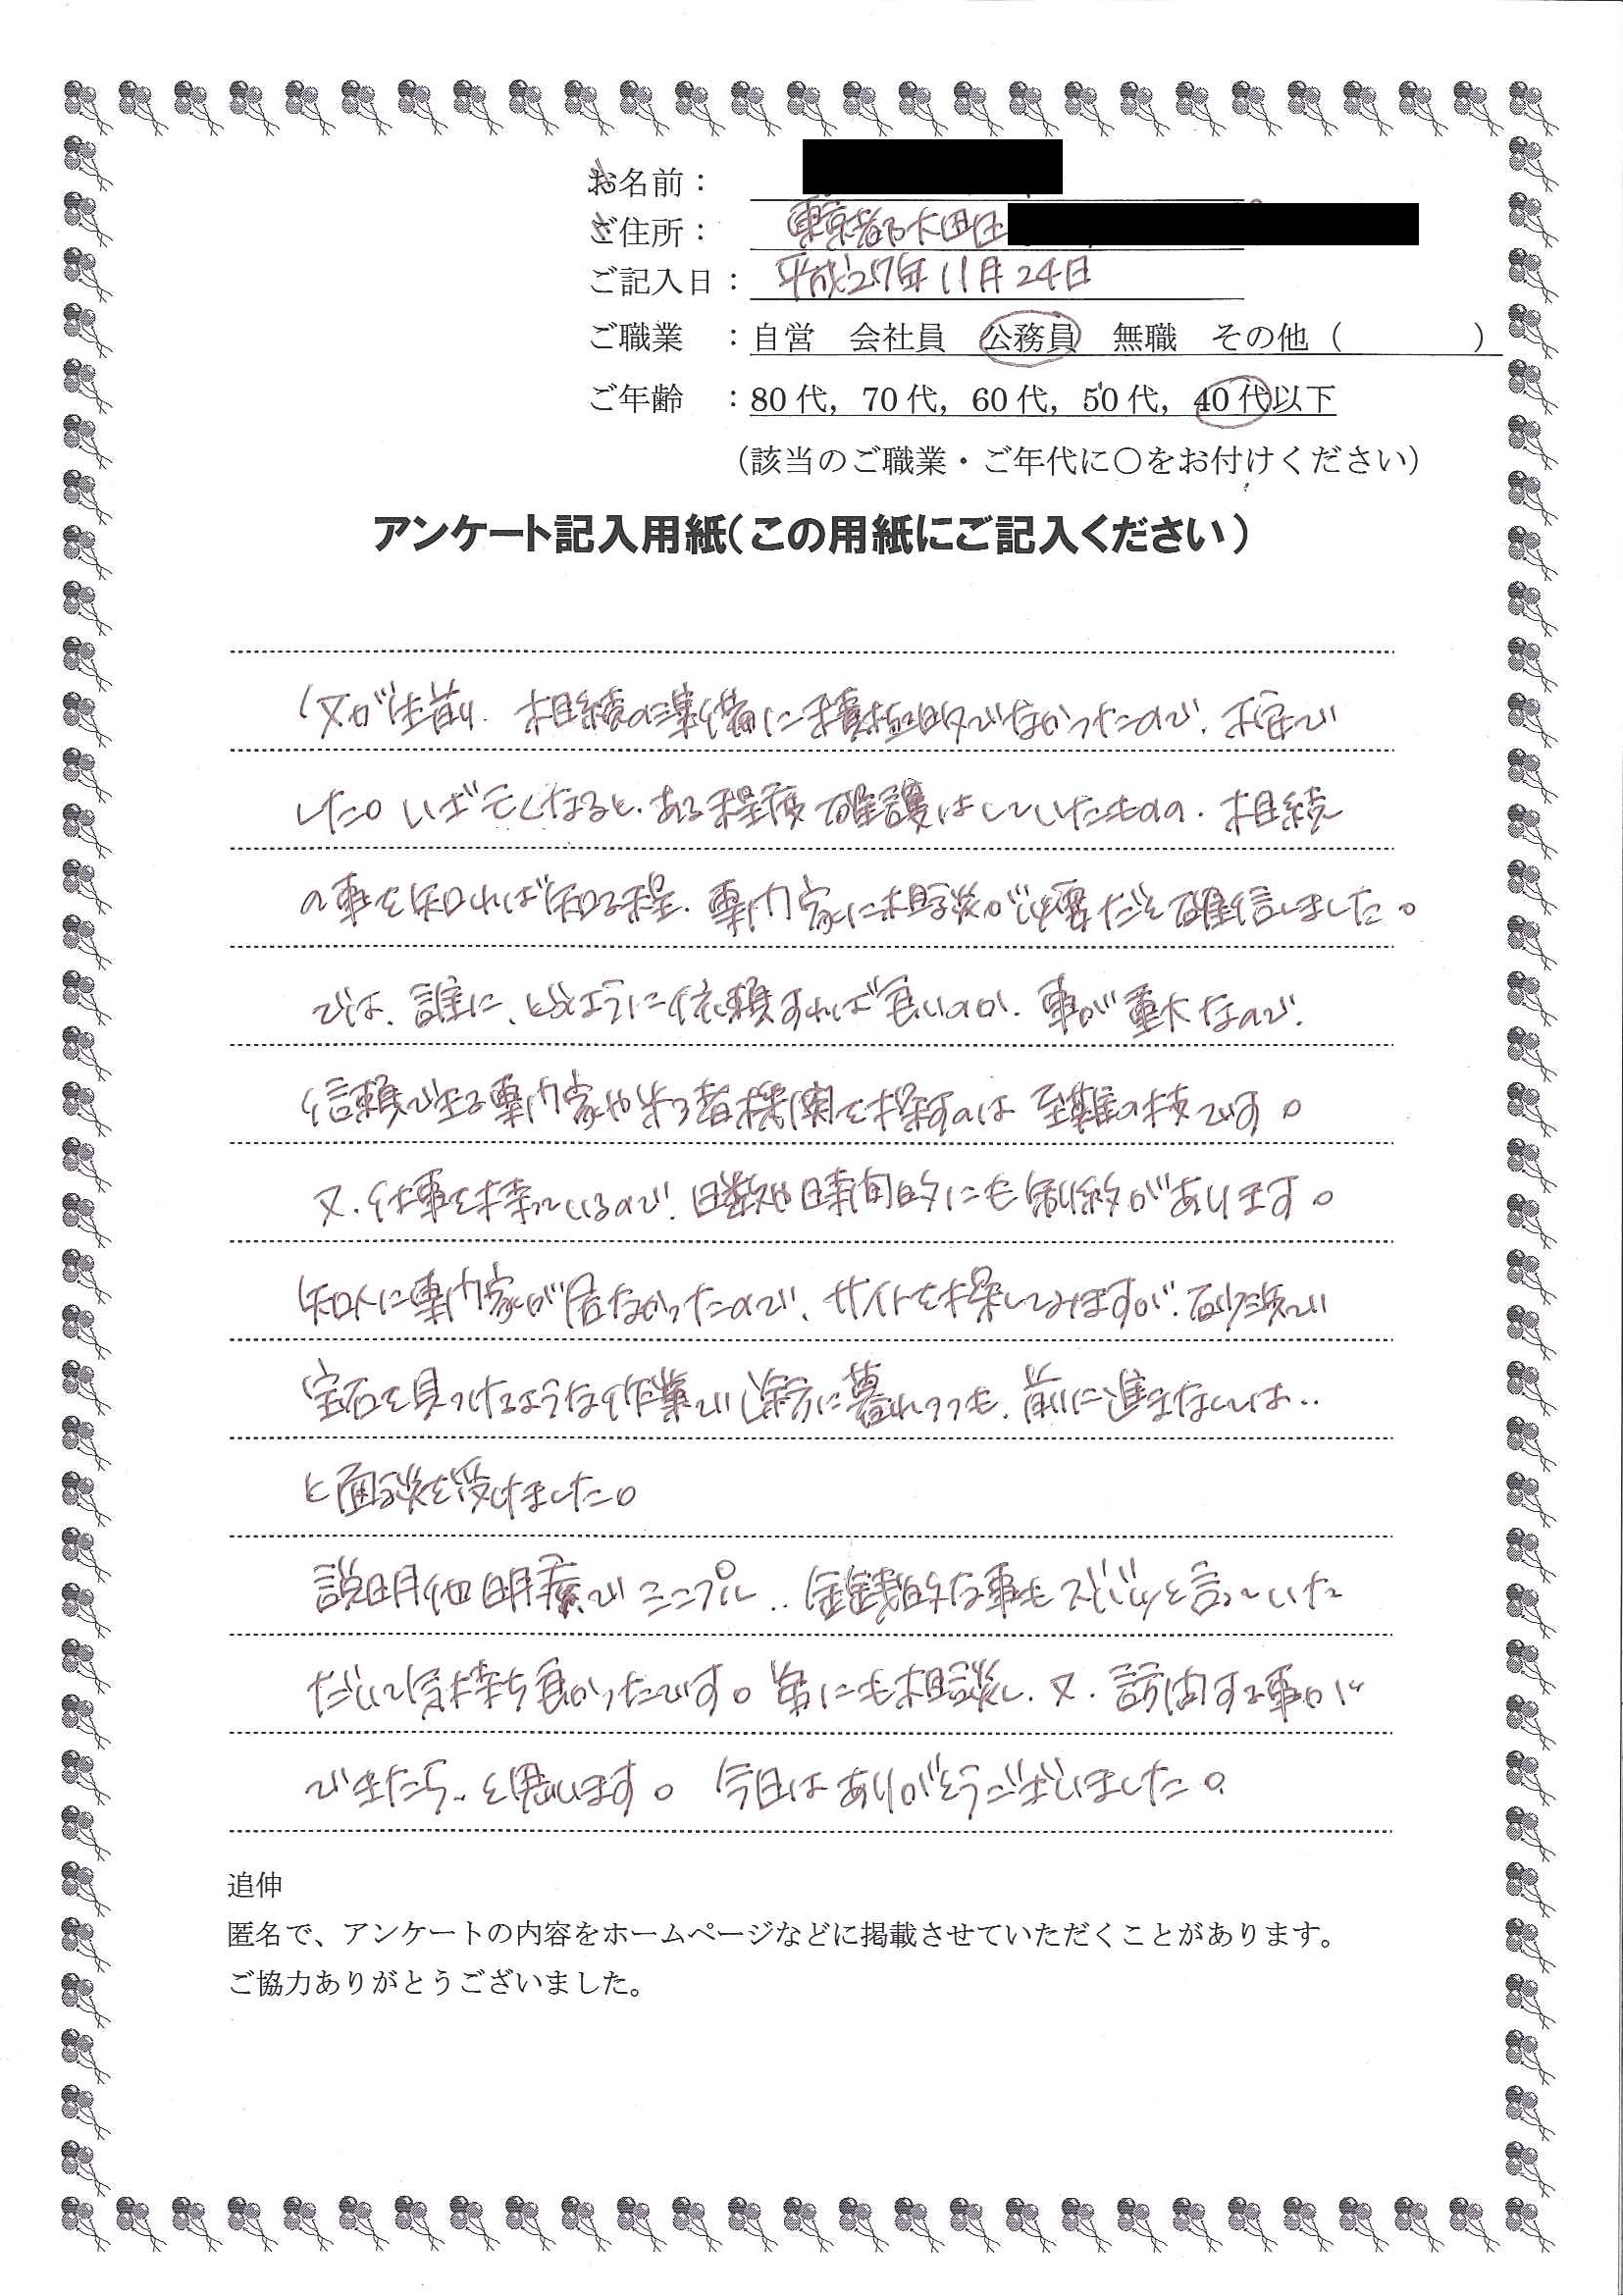 お名前：
ご住所： 東京都大田区
ご記入日： 平成27年11月24日
ご職業 ：自営 会社員 公務員 無職 その他（ ）
ご年齢 ：80代，70代，60代，50代，40代以下
（該当のご職業・ご年代に〇をお付けください）
アンケート記入用紙（この用紙にご記入ください）
父が生前、相続の準備に積極的でなかったので、不安で
した。いざ亡くなると、ある程度 はしていたものの、相続
の事を知れば知る程、専門家に相談が必要だと確信しました。
では、誰に、どのように依頼すれば良いのか、事が重大なので、
信頼できる専門家や 機関を探すのは至難の技です。
又、仕事を持っているので、日数や時間的にも制約があります。
知人に専門家が居なかったので、サイトを探してみますが、砂浜で
宝石を見つけるような作業で途方に暮れつつも、前に進まないでは‥
と面談を受けました。
説明他明瞭でシンプル‥金銭的な事もズバッと言っていた
だいて気持ち良かったです。弟にも相談し、又、訪問する事が
できたら‥と思います。今日はありがとうございました。
追伸
匿名で、アンケートの内容をホームページなどに掲載させていただくことがあります。
ご協力ありがとうございました。